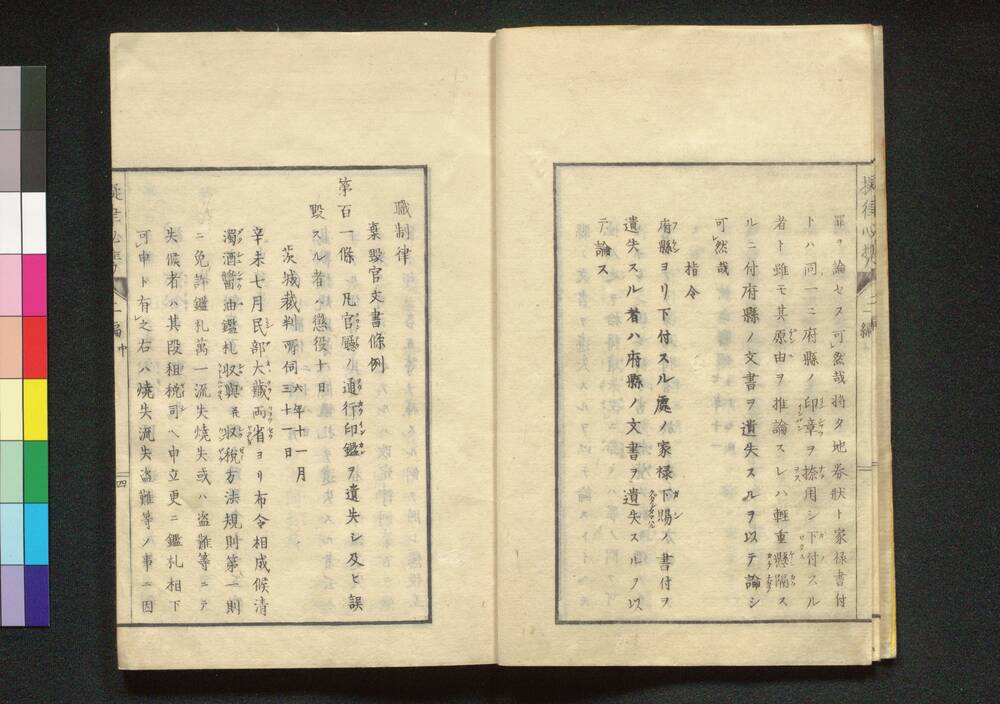 罪ヲ論セス可然哉將タ地券狀ト家禄書付
トハ同一ニ府縣ノ印章ヲ捺用シ下付スル
者ト雖モ其原由ヲ推論スレハ輕重懸隔ス
ルニ付府縣ノ文書ヲ遺失スルヲ以テ論シ
可然哉
指令
府縣ヨリ下付スル處ノ家禄下賜ノ書付ヲ
遺失スル者ハ府縣ノ文書ヲ遺失スルヲ以
テ論ス
二編
職制律
棄毀官文書條例
第百一條 凡官廳ノ通行印鑑ヲ遺失シ及ヒ誤
毀スル者ハ懲役十日
茨城裁判所伺 六年十一月三十一日
辛未七月民部大藏両省ヨリ布令相成候清
濁酒醬油鑑札収與並収税方法規則第一則
ニ免許鑑札萬一流失燒失或ハ盗難等ニテ
失候者ハ其段租税司ヘ申立更ニ鑑札相下
可申ト有之右ハ燒失流失盗難等ノ事ニ因
二編 中
四